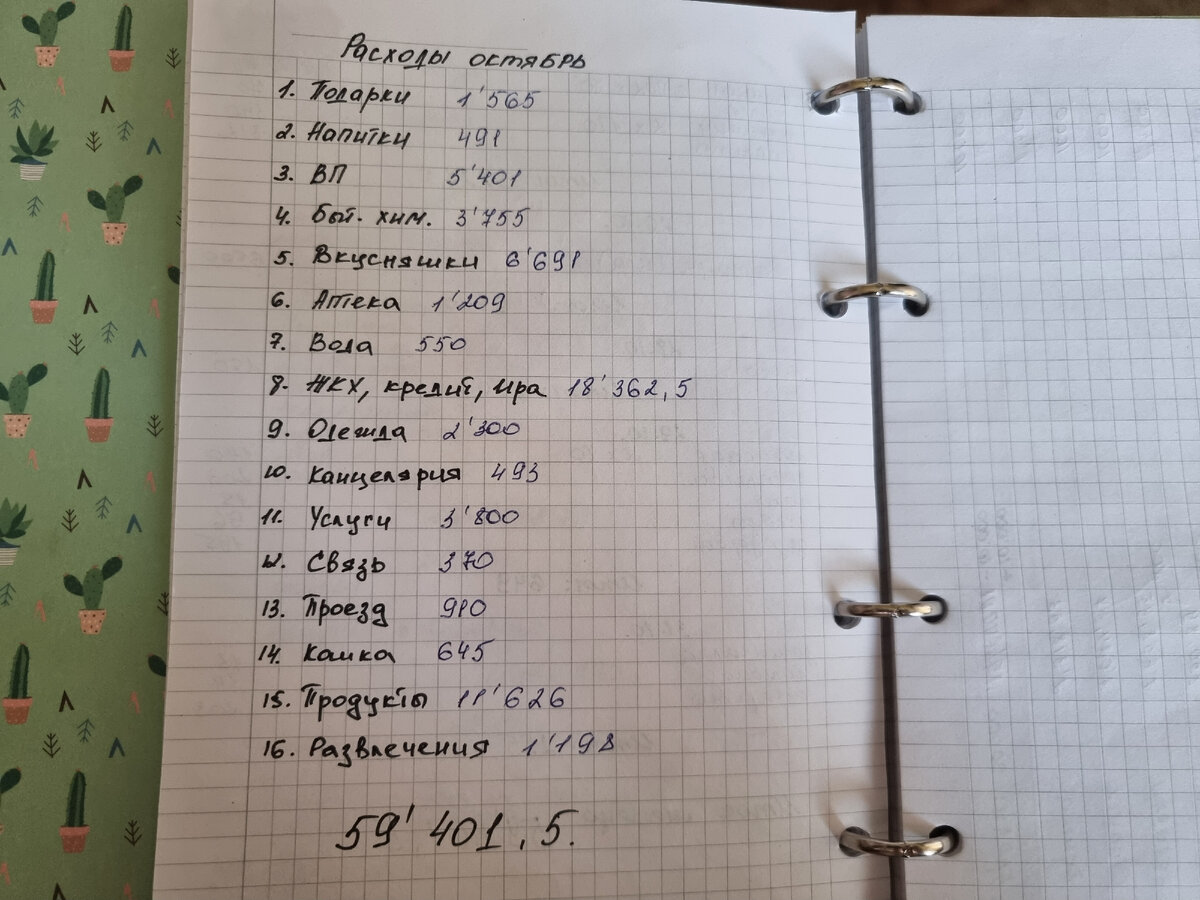 Расходы октябрь
1. Подарки 1'565
2. Напитки 491
3. ВП 5'401
4. Быт. хим. 3'755
5. Вкусняшки 6'691
6. Аптека 1'209
7. Вода 550
8. ЖКХ, кредит, Ира 18'362,5
9. Одежда 2'300
10. Канцелярия 493
11. Услуги 3'800
12. Связь 370
13. Проезд 910
14. Кошка 645
15. Продукты 11'626
16. Развлечения 1'198
59'401,5.